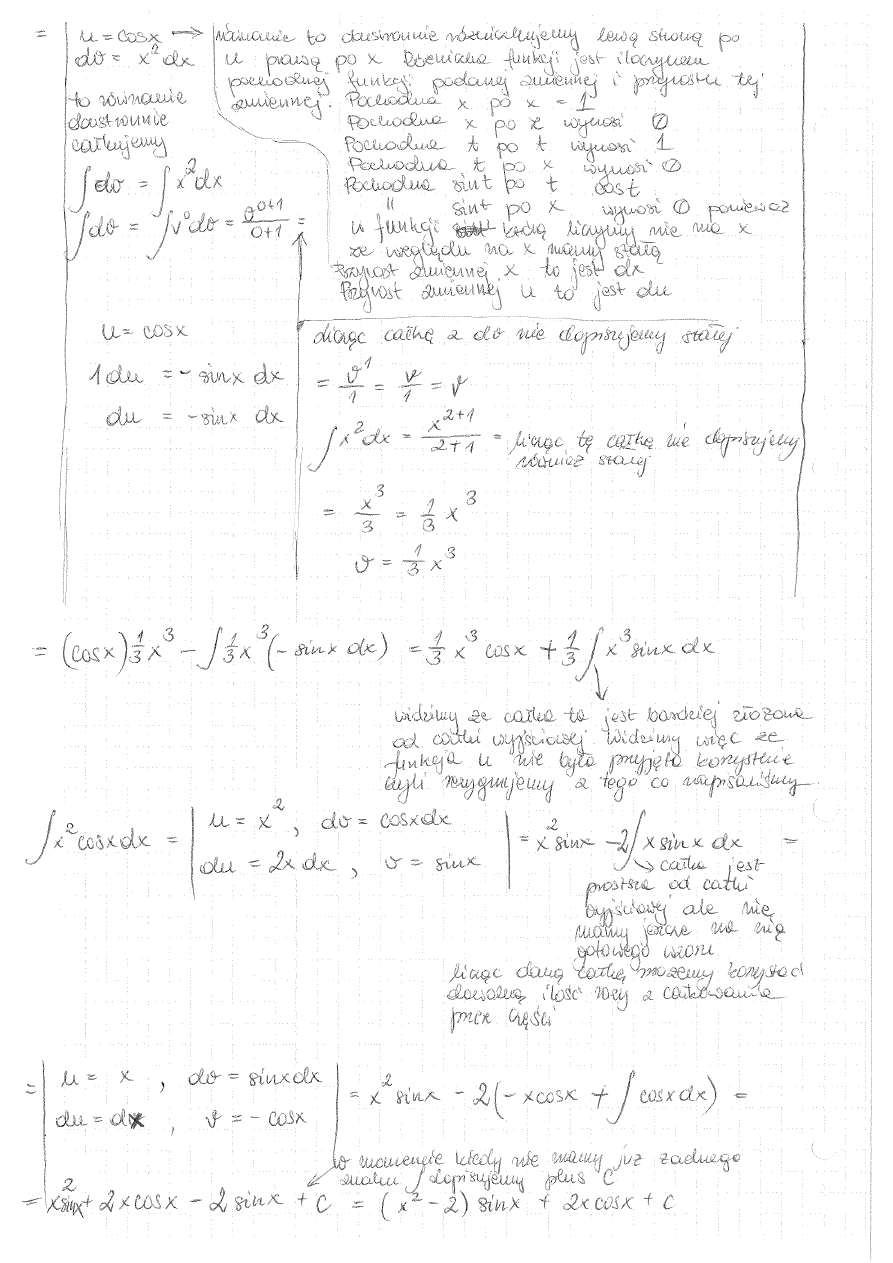 = | u = cosx → równanie to dwustronnie różniczkujemy lewą stroną po
dv = x² dx u prawą po x Różniczka funkcji jest iloczynem
pochodnej funkcji podanej zmiennej i przyrostu tej
to równanie zmiennej. Pochodna x po x = 1
dwustronnie Pochodna x po z wynosi 0
całkujemy Pochodna t po t wynosi 1
Pochodna t po x wynosi 0
∫dv = ∫x² dx Pochodna sint po t cost
∫dv = ∫v⁰dv = v^(0+1)/(0+1) = " sint po x wynosi 0 ponieważ
w funkcji którą liczymy nie ma x
ze względu na x mamy stałą
Przyrost zmiennej x to jest dx
Przyrost zmiennej u to jest du
u = cosx licząc całkę z dv nie dopisujemy stałej
1 du = - sinx dx = v¹/1 = v/1 = v
du = -sinx dx
∫x² dx = x^(2+1)/(2+1) = licząc tę całkę nie dopisujemy
również stałej
= x³/3 = 1/3 x³
v = 1/3 x³
= (cosx) 1/3 x³ - ∫ 1/3 x³ (- sinx dx) = 1/3 x³ cosx + 1/3 ∫ x³ sinx dx
widzimy ze całka ta jest bardziej złożona
od całki wyjściowej Widzimy więc ze
funkcja u nie była przyjęta korzystnie
czyli rezygnujemy z tego co napisaliśmy
∫x² cosx dx = | u = x² , dv = cosx dx
du = 2x dx , v = sinx | = x² sinx - 2∫ x sinx dx =
całka jest
prostsza od całki
wyjściowej ale nie
mamy jeszcze na nią
gotowego wzoru
licząc daną całkę możemy korzystać
dowolną ilość razy z całkowania
przez części
= | u = x , dv = sinx dx
du = dx , v = - cosx | = x² sinx - 2(-x cosx + ∫ cosx dx) =
w momencie kiedy nie mamy już żadnego
znaku ∫ dopisujemy plus C
= x² sinx + 2x cosx - 2 sinx + C = (x² - 2) sinx + 2x cosx + C